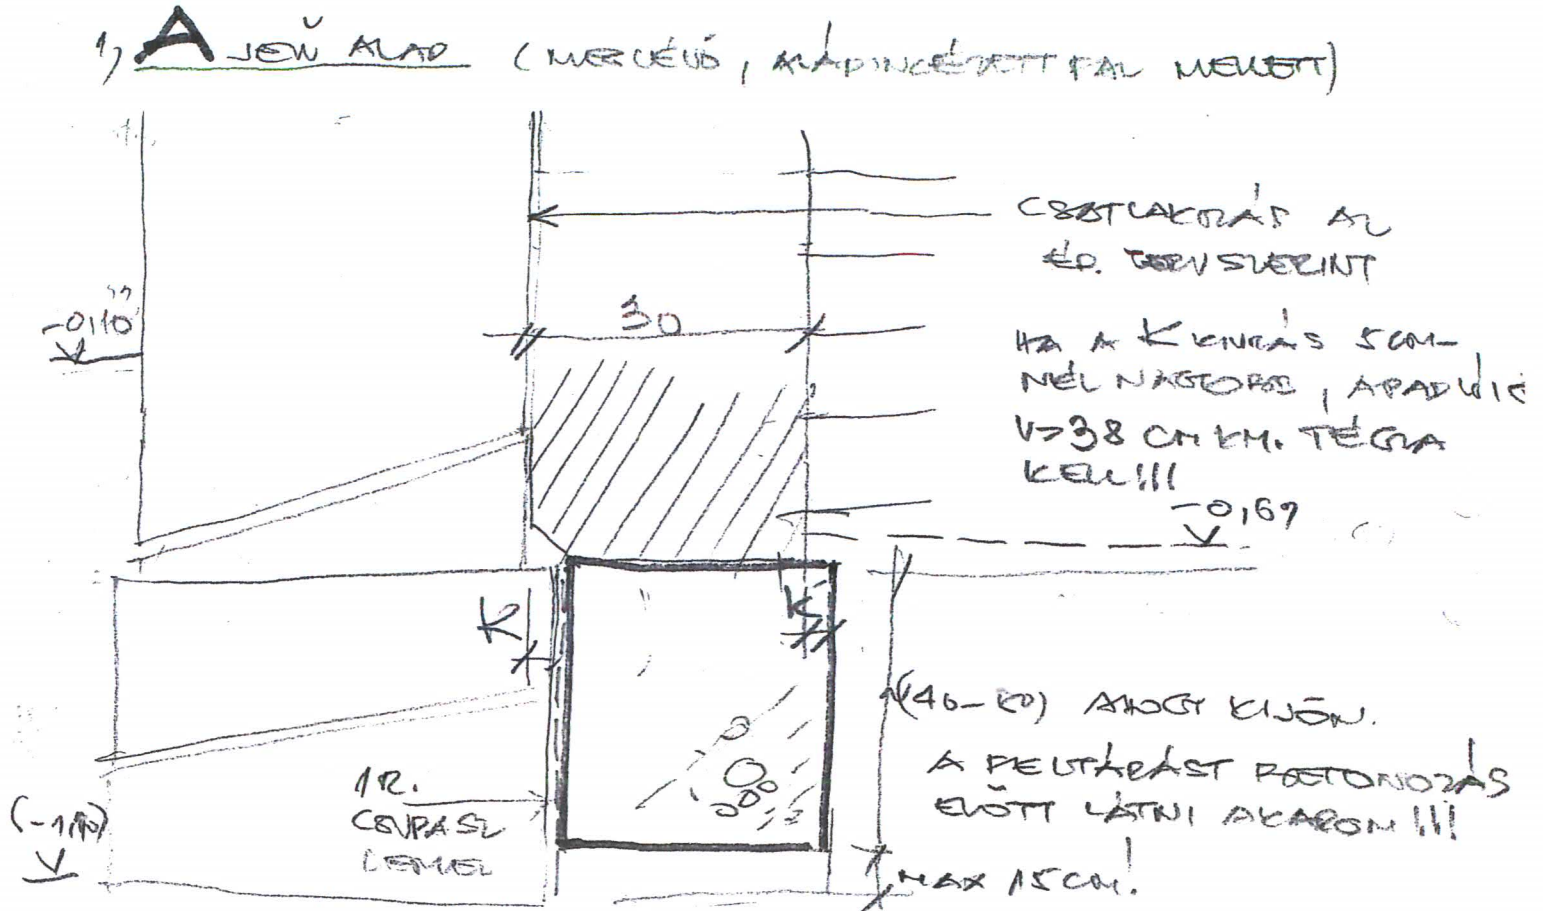 1, A JELŰ ALAP (MEGLÉVŐ, ALÁPINCÉZETT FAL MELLETT)
CSATLAKOZÁS AZ
ÉP. TERV SZERINT
-0,10
30
HA A K KINYÚLÁS 5 CM-
NÉL NAGYOBB, A
V=38 CM KM. TÉGLA
KELL!!!
-0,67
K
K
(40-60) AHOGY KIJÖN.
A FELTÁRÁST BETONOZÁS
ELŐTT LÁTNI AKAROM!!!
1 R.
CSUPASZ
LEMEZ
MAX 15 CM!